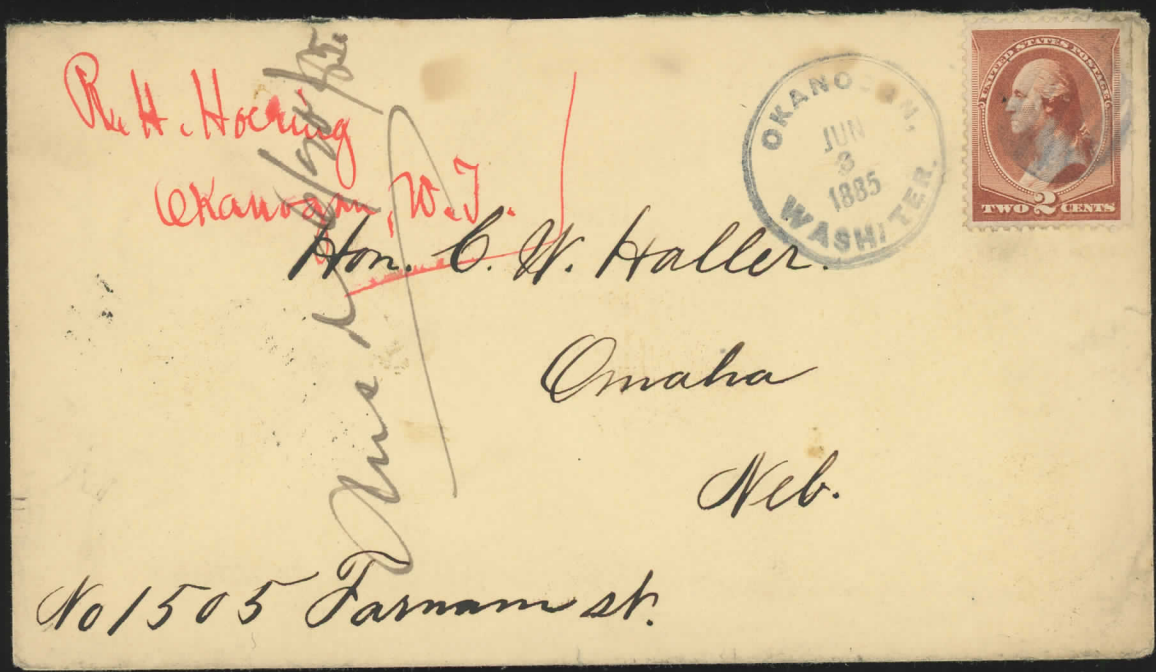 R. H. Hoering
Okanogan, W.T.
OKANOGAN,
JUN
3
1885
WASH. TER.
UNITED STATES POSTAGE
TWO 2 CENTS
Hon. C. W. Haller.
Omaha
Neb.
No 1505 Farnam st.
Ansd